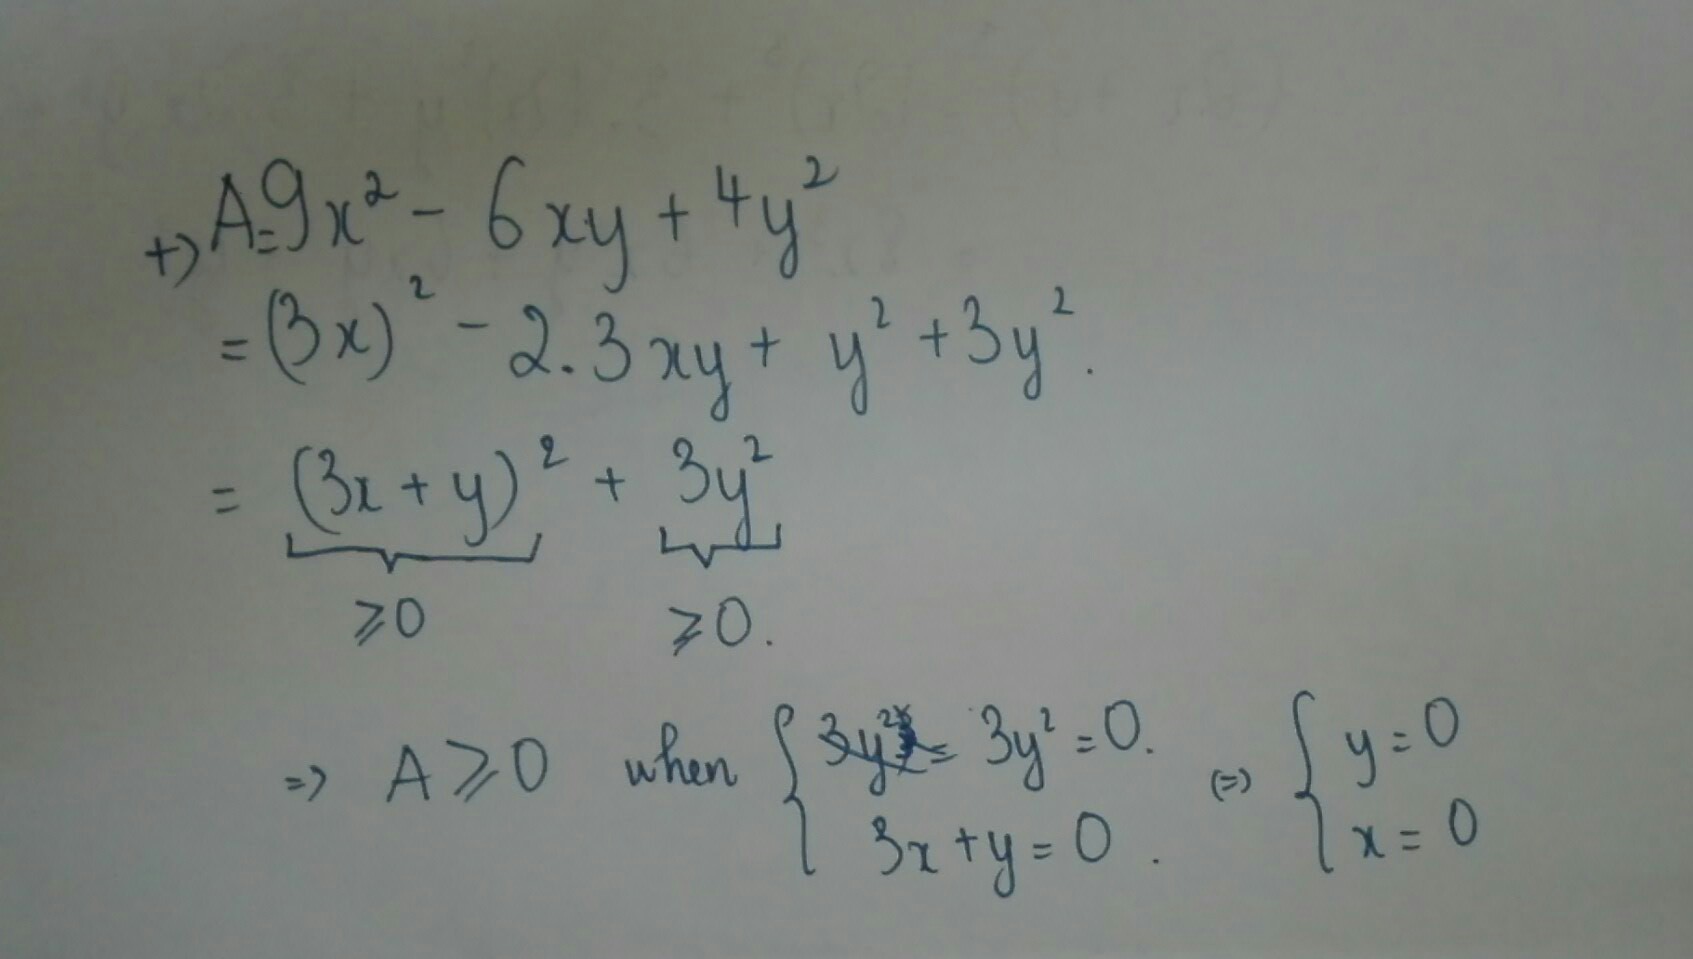 +) A = 9x² - 6xy + 4y²
= (3x)² - 2.3xy + y² + 3y².
= (3x + y)² + 3y²
≥0 ≥0.
=> A ≥ 0 when { 3y² = 0. (=) { y = 0
3x + y = 0 . x = 0